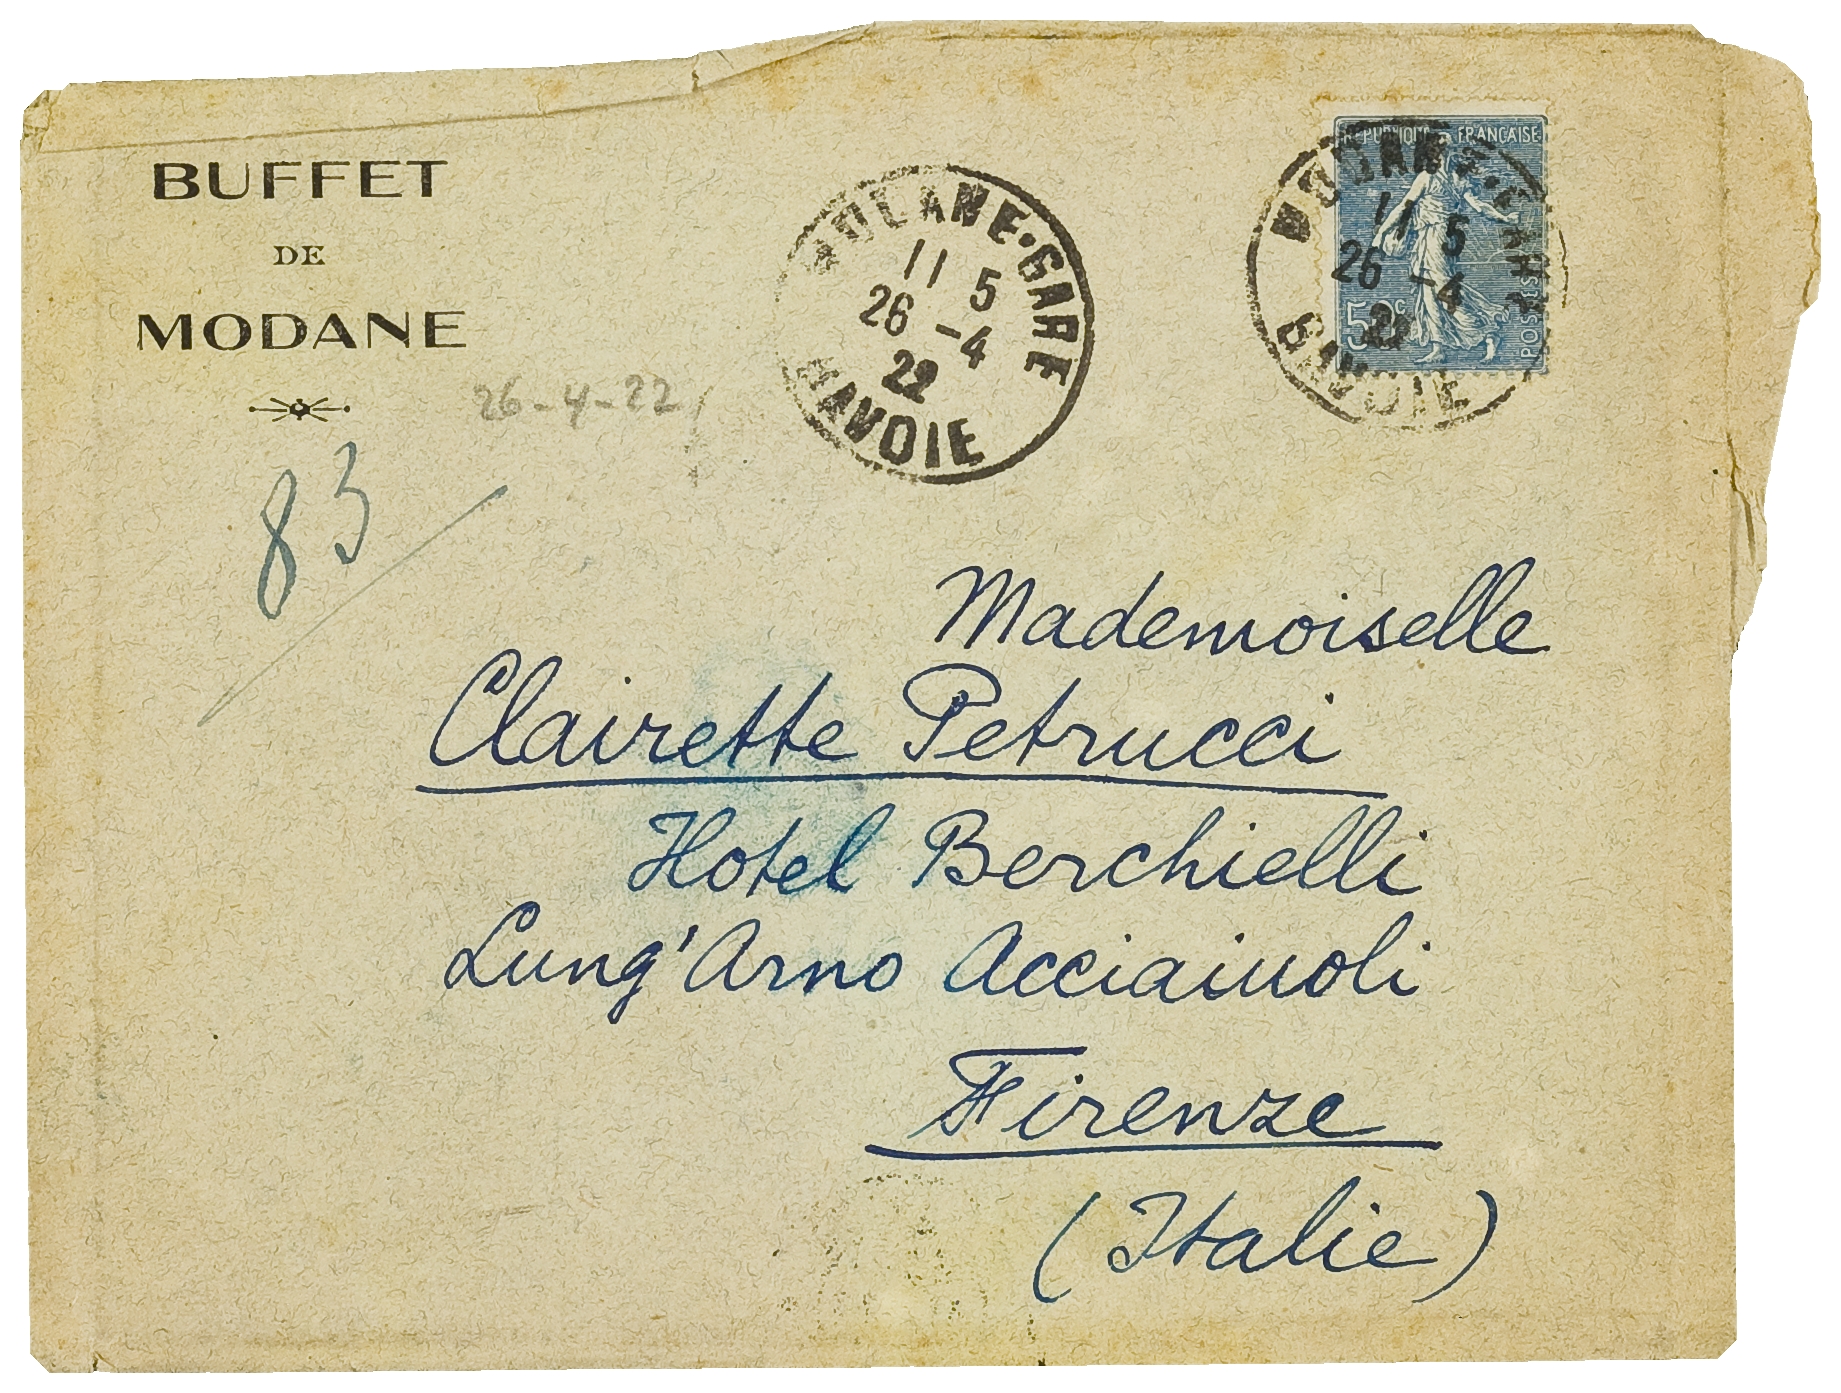 BUFFET
DE
MODANE
26-4-22
83
MODANE·GARE
11 5
26 -4
22
SAVOIE
RÉPUBLIQUE FRANÇAISE
MODANE·GARE
11 5
26 -4
22
SAVOIE
50c
POSTES
Mademoiselle
Clairette Petrucci
Hotel Berchielli
Lung'Arno Acciaiuoli
Firenze
(Italie)